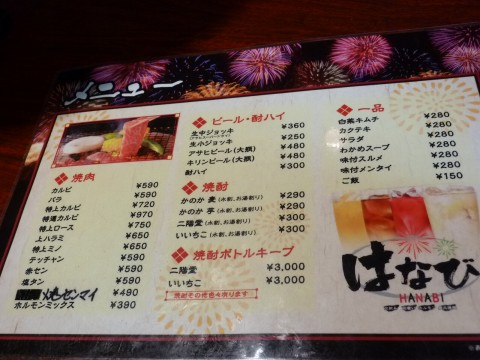 メニュー
焼肉
カルビ ¥590
バラ ¥590
特上カルビ ¥720
特選カルビ ¥970
特上ロース ¥750
上ハラミ ¥650
特上ミノ ¥650
テッチャン ¥550
赤セン ¥550
塩タン ¥550
焼センマイ ¥490
ホルモンミックス ¥390
ビール・酎ハイ
生中ジョッキ ¥360
生小ジョッキ ¥250
アサヒビール(大瓶) ¥480
キリンビール(大瓶) ¥480
酎ハイ ¥300
焼酎
かのか 麦(水割、お湯割り) ¥290
かのか 芋(水割、お湯割り) ¥290
二階堂(水割、お湯割り) ¥300
いいちこ(水割、お湯割り) ¥300
焼酎ボトルキープ
二階堂 ¥3,000
いいちこ ¥3,000
一品
白菜キムチ ¥280
カクテキ ¥280
サラダ ¥280
わかめスープ ¥280
味付スルメ ¥280
味付メンタイ ¥280
ご飯 ¥150
はなび
HANABI